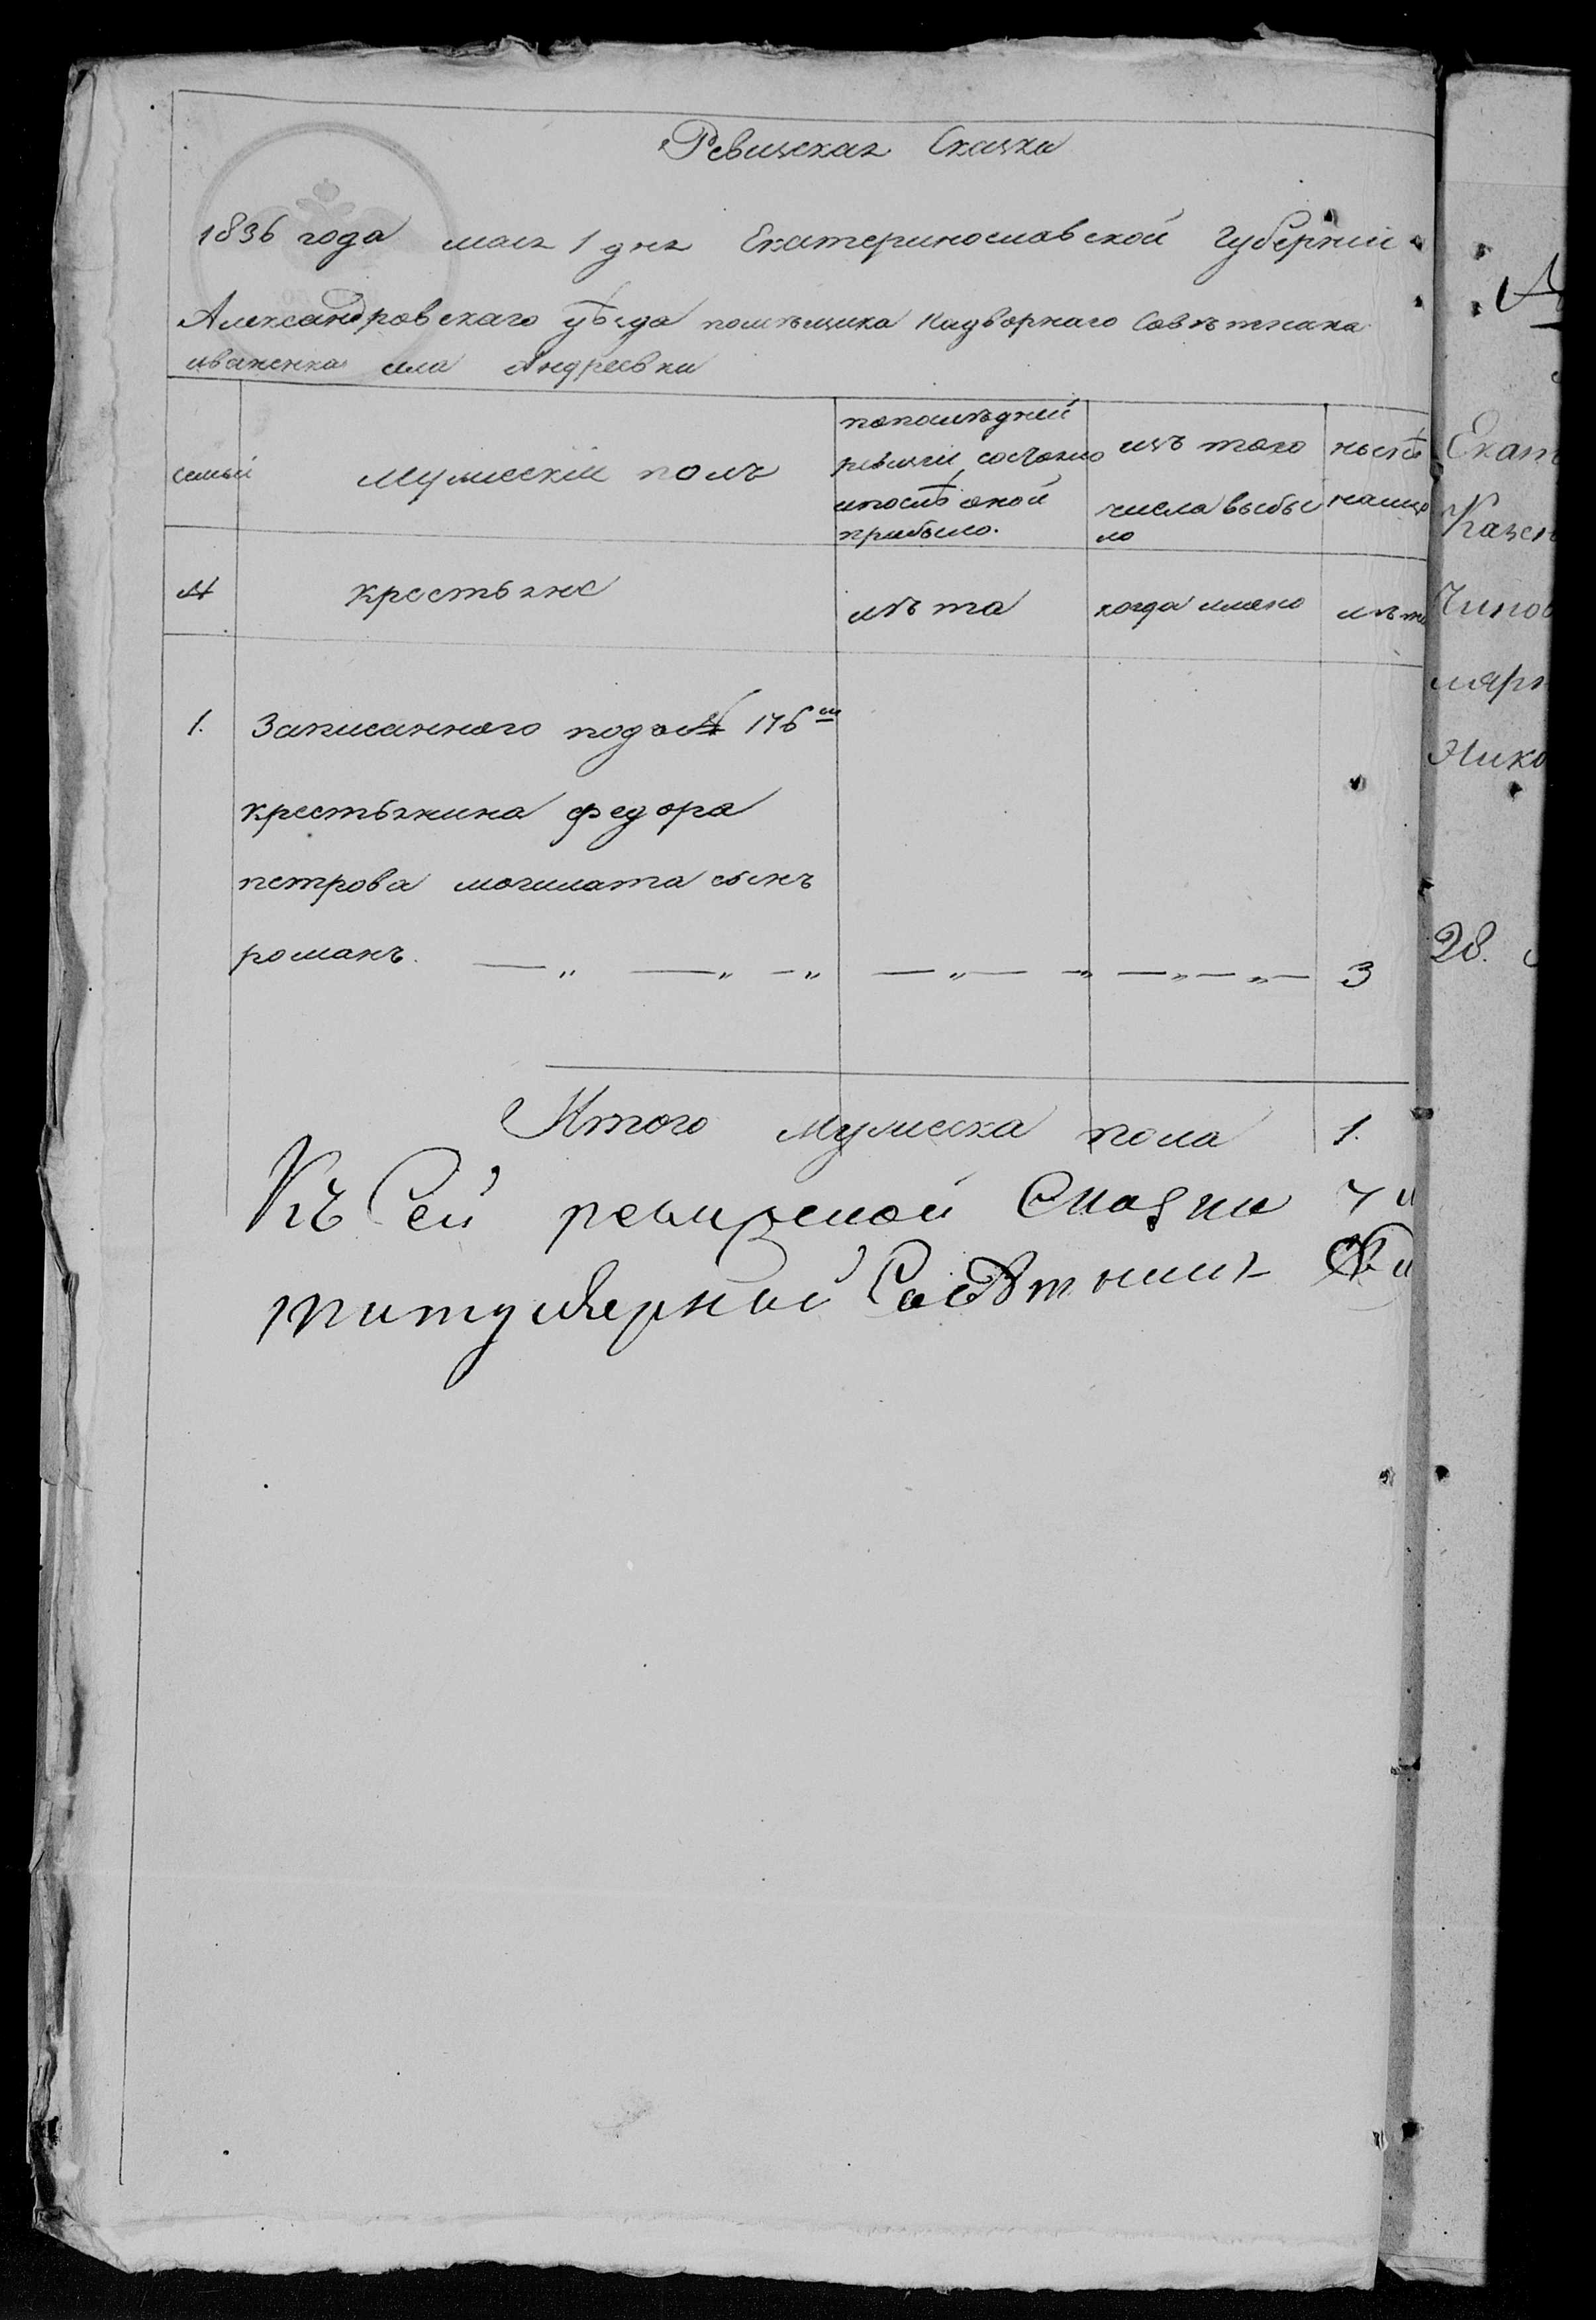 Ревизская Сказка
1836 года мая 1 дня Екатеринославской Губернии
Александровскаго уѣзда помѣщика Надворнаго Совѣтника
иваненка села Андреевки
семьи
Мужескій полъ
попоследней
ревизіи состояло
ипослѣ оной
прибыло.
изъ того
числа выбы
ло
нынѣ
налицо
№
крестьяне
лѣта
когда имено
лѣта
1. Записанного подъ № 176 м
крестьянина федора
петрова могилата сынъ
романъ. — „ — „ — „ — „ — „ — „ — „ — 3
Итого Мужеска пола 1.
Къ Сей ревизской Сказки
титулярный Совѣтникъ
Екат
Казен
Чинов
ляря
Нико
28.